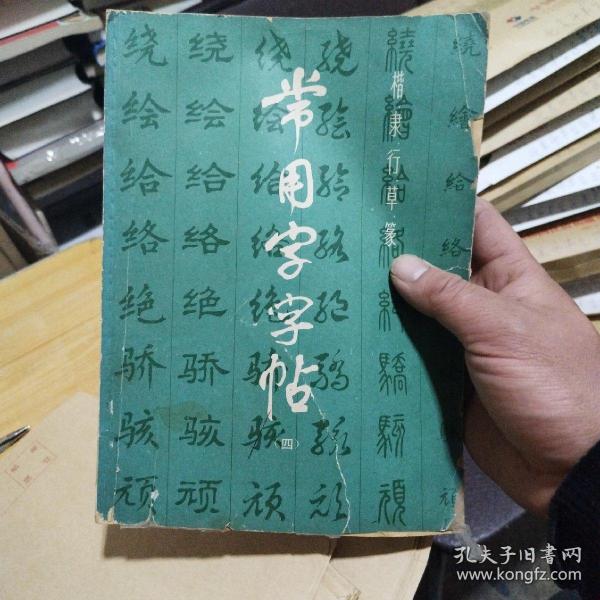 常用字字帖
(四)
楷隶行草篆
绕绕绕绕繞繞
绘绘绘绘繪繪
给给给给給給
络络络络絡絡
绝绝绝绝絕
骄骄骄骄驕
骇骇骇骇駭
顽顽顽顽頑頑
孔夫子旧书网
www.kongfz.com